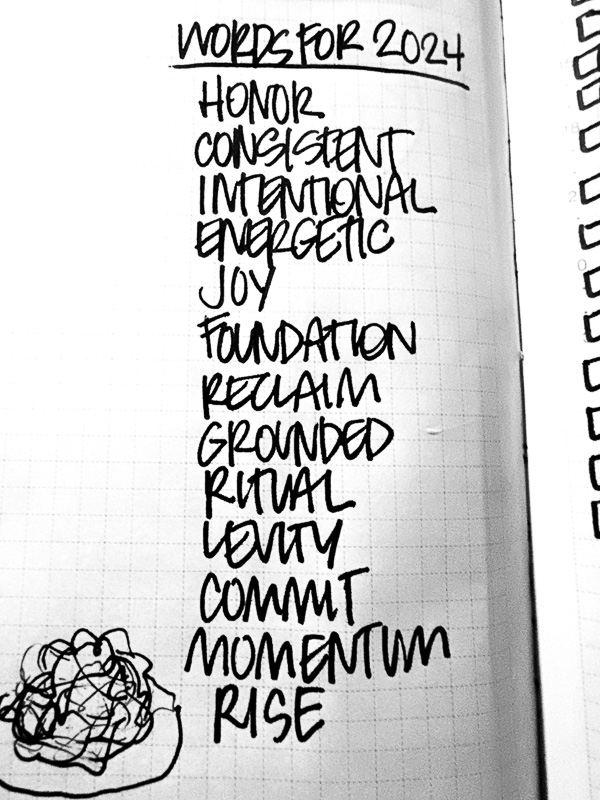 WORDS FOR 2024
HONOR
CONSISTENT
INTENTIONAL
ENERGETIC
JOY
FOUNDATION
RECLAIM
GROUNDED
RITUAL
LEVITY
COMMIT
MOMENTUM
RISE